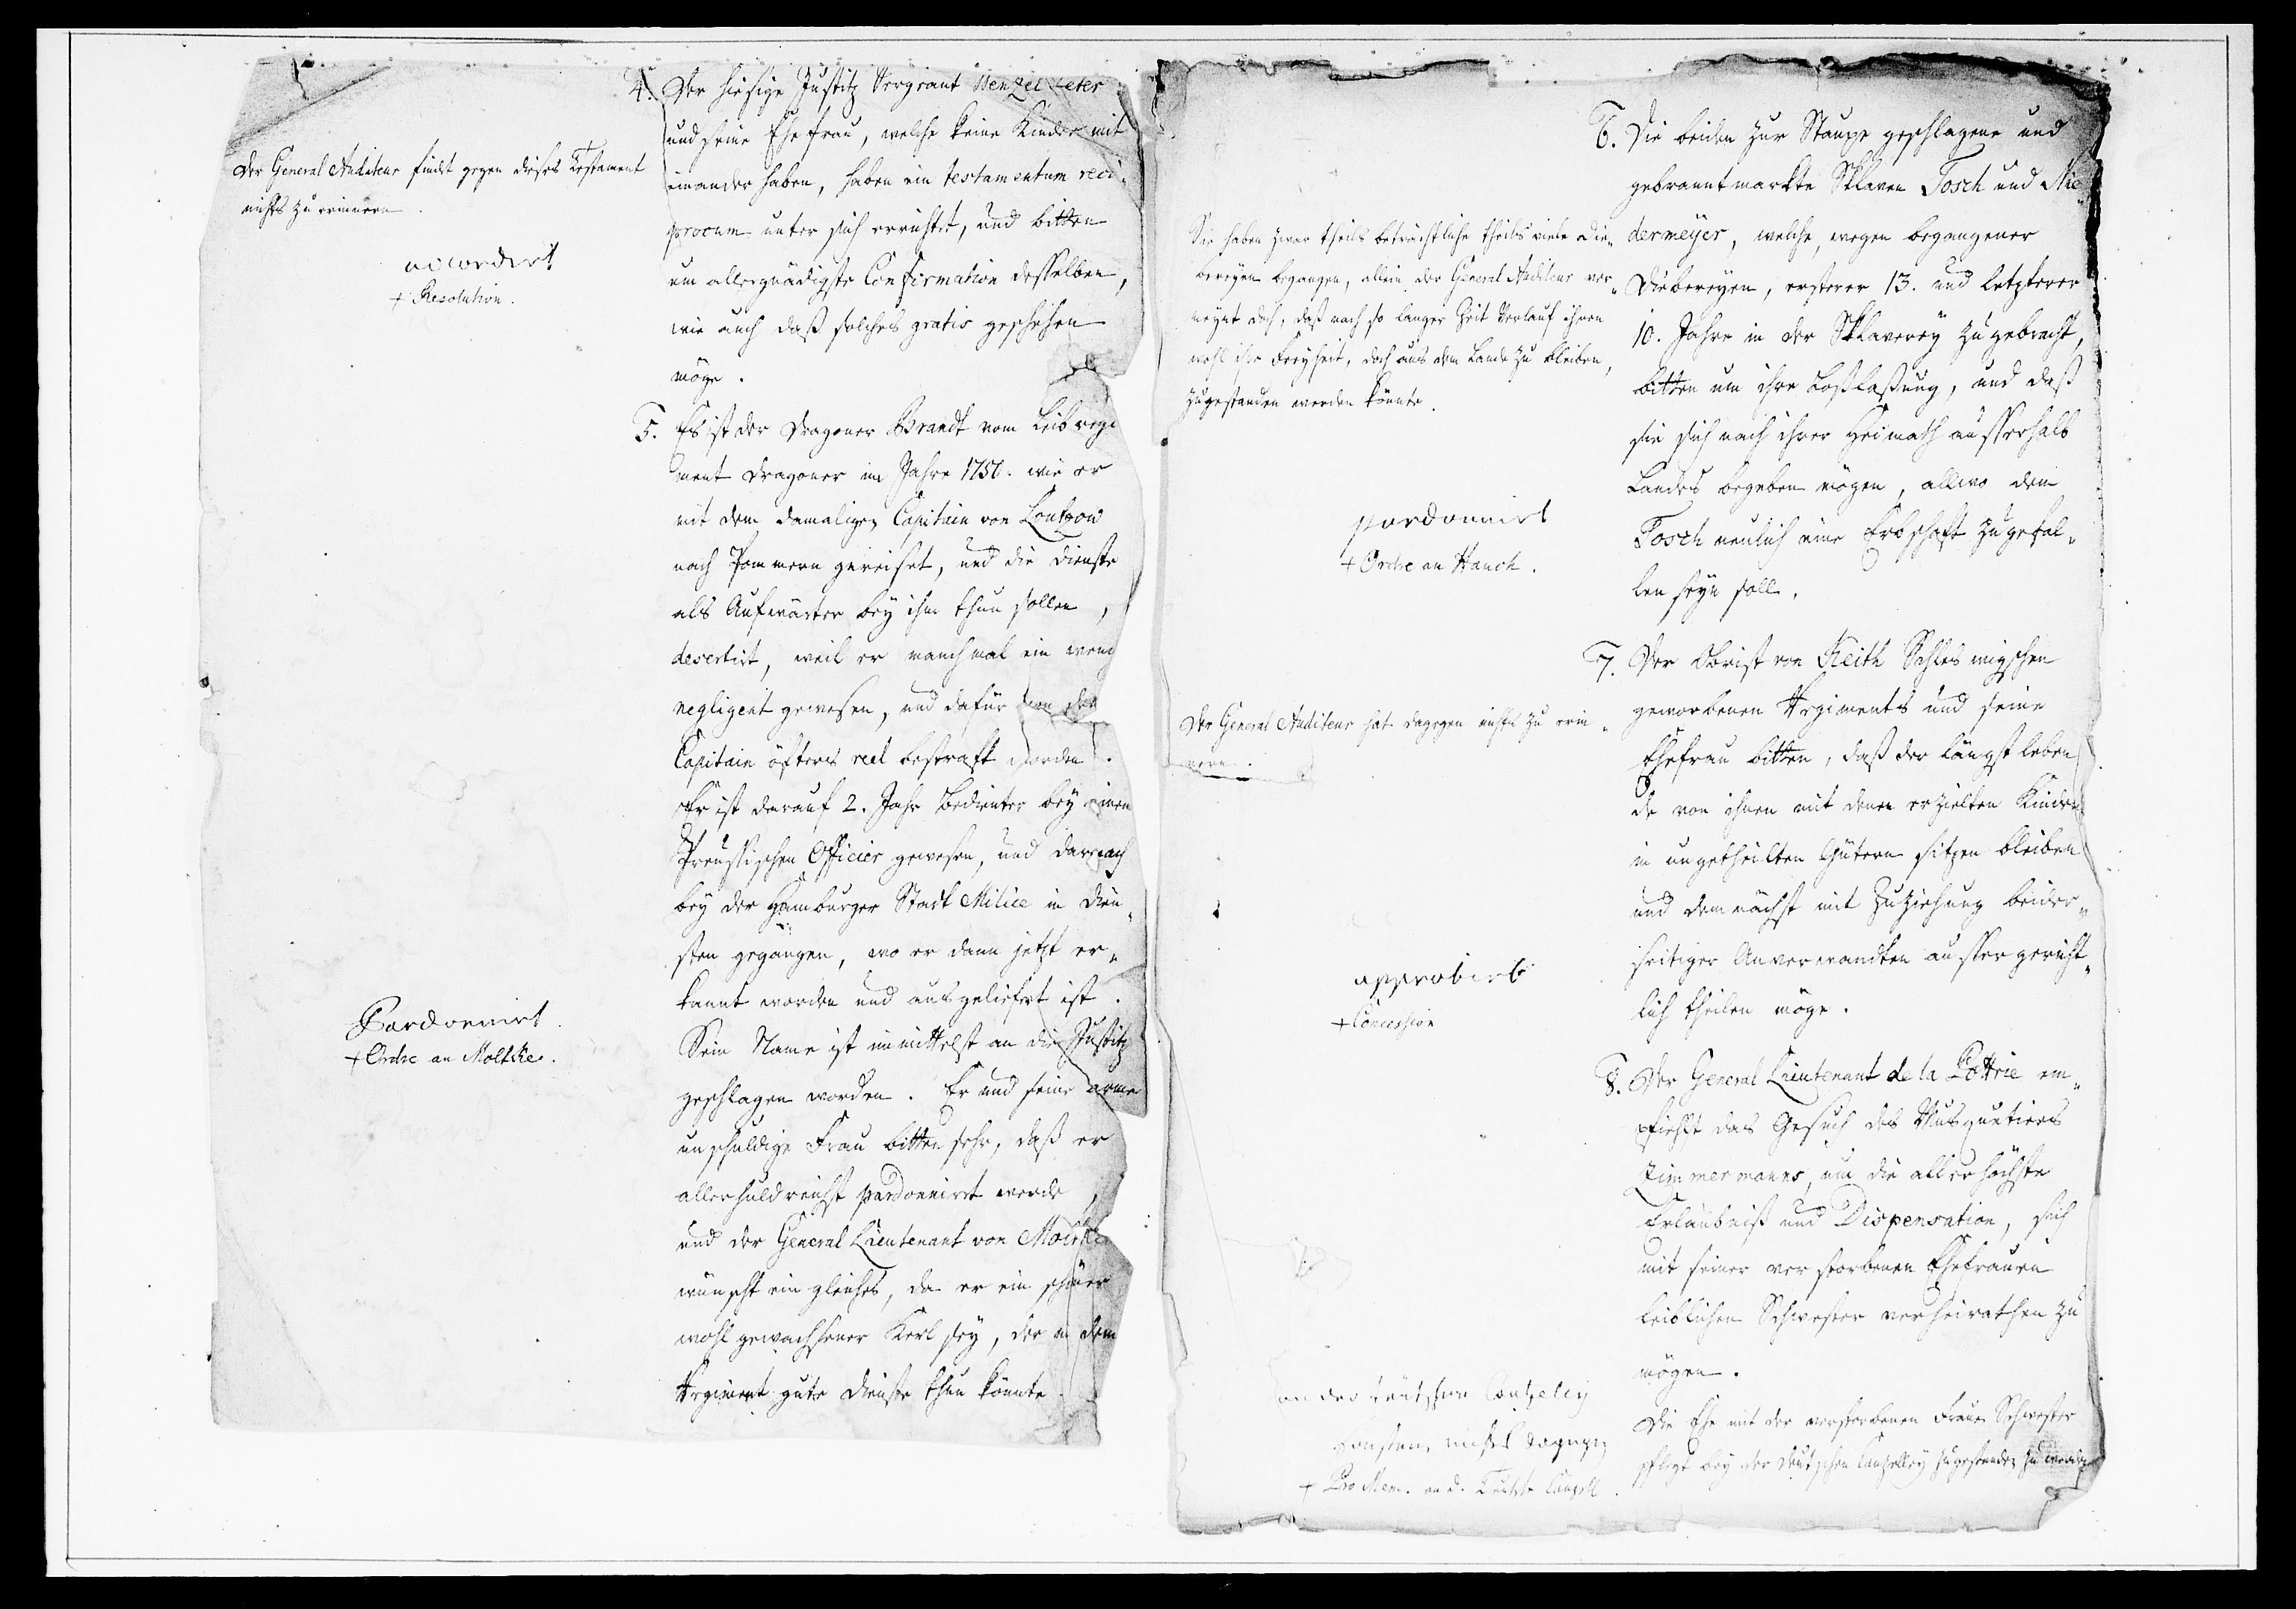 4. Der hiesige Justitz Sergeant Wenzel Peter
und seine Ehefrau, welche keine Kinder mit
einander haben, haben ein testamentum reci„
procum unter sich errichtet, und bitten
um allergnädigste Confirmation desselben,
wie auch daß solches gratis geschehen
möge.
Der General Auditeur findet gegen dieses Testament
nichts zu erinnern.
accordirt
+ Resolution.
5. Es ist der Dragoner Brandt vom Leib regi
ment Dragoner im Jahre 1757. wie er
mit dem damaligen Capitain von
nach Pommern gereiset, und die Dienste
als Aufwärter bey ihm thun sollen,
desertirt, weil er manchmal ein wenig
negligent gewesen, und dafür von dem
Capitain öfters reel bestraft worden.
Er ist darauf 2. Jahr Bedienter bey einem
Preussischen Officier gewesen, und darnach
bey der Hamburger Stadt Milice in Dien„
sten gegangen, wo er dann jetzt er„
kannt worden und ausgeliefert ist.
Sein Name ist immittelst an die Justitz
geschlagen worden. Er und seine arme
unschuldige Frau bitten sehr, daß er
allerhuldreichst pardonnirt werde,
und der General Lieutenant von Moltke
wünscht ein gleiches, da er ein schöner
wohl gewachsener Kerl sey, der in dem
Regiment gute Dienste thun könnte.
Pardonnirt.
+ Ordre an Moltke.
6. Die beiden zur Staupe geschlagene und
gebranntmarkte Sklaven Tosch und Nie„
dermeyer, welche, wegen begangener
Diebereyen, ersterer 13. und letzterer
10. Jahre in der Sklaverey zugebracht,
bitten um ihre Loßlaßung, und daß
sie sich nach ihrer Heimath ausserhalb
Landes begeben mögen, allwo dem
Tosch neulich eine Erbschaft zugefal„
len seyn soll.
Sie haben zwar theils beträchtliche theils viele Die„
bereyen begangen, allein der General Auditeur ver„
meynt doch, daß nach so langer Zeit Verlauf ihnen
wohl ihre Freyheit, doch aus dem Lande zu bleiben,
zugestanden werden könnte.
pardonnirt
+ Ordre an Hauch.
7. Der Obrist von Keith Schleswigschen
geworbenen Regiments und seine
Ehefrau bitten, daß der längst leben
de von ihnen mit denen erzielten Kindern
in ungetheilten Gütern sitzen bleiben
und demnächst mit Zuziehung beider„
seitiger Anverwandten aussergericht„
lich theilen möge.
Der General Auditeur hat dagegen nichts zu erin„
nern.
approbirt
+ Concession
8. Der General Lieutenant de la Pottrie em„
pfiehlt das Gesuch des Musquetiers
Zimmermanns, um die allerhöchste
Erlaubniß und Dispensation, sich
mit seiner verstorbenen Ehefrauen
leiblichen Schwester verheirathen zu
mögen.
Die Ehe mit der verstorbenen Frauen Schwester
pflegt bey der deutschen Cantzelley zugestanden zu werden
an der teutschen Cantzeley
sonsten nichts dagegen
+ Pro Mem. an d. Teutsche Cantzell.